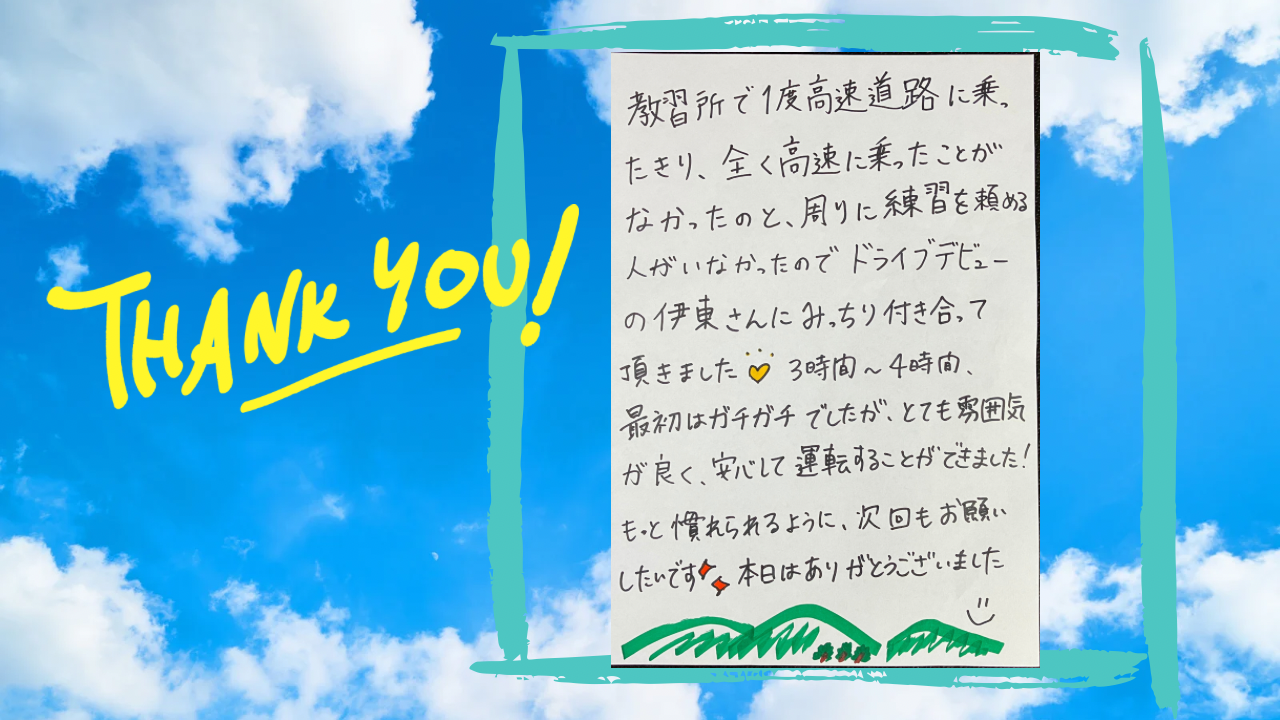 THANK YOU!
教習所で1度高速道路に乗っ
たきり、全く高速に乗ったことが
なかったのと、周りに練習を頼める
人がいなかったのでドライブデビュー
の伊東さんにみっちり付き合って
頂きました 3時間~4時間、
最初はガチガチでしたが、とても雰囲気
が良く、安心して運転することができました!
もっと慣れられるように、次回もお願い
したいです 本日はありがとうございました